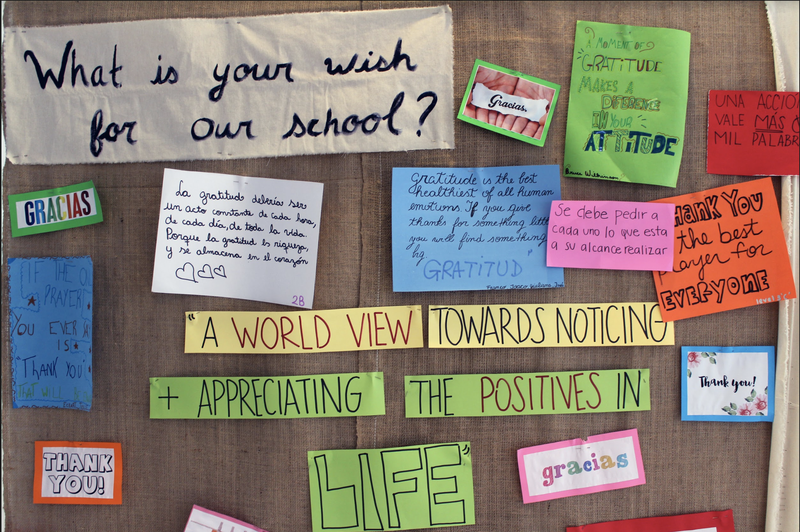 What is your wish
for our school?
Gracias.
A MOMENT OF
GRATITUDE
MAKES A
DIFERENCE
IN YOUR
ATTITUDE
Bruce Wilkinson
UNA ACCIO
VALE MÁS
MIL PALABR
GRACIAS
La gratitud debería ser
un acto constante de cada hora,
de cada día, de toda la vida.
Porque la gratitud es riqueza,
y se almacena en el corazón
2B
Gratitude is the best
healthiest of all human
emotions. If you give
thanks for something little
you will find something
GRATITUD"
Se debe pedir a
cada uno lo que esta
a su alcance realizar
THANK YOU
the best
prayer for
EVERYONE
IF THE O
PRAYER
YOU EVER
IS
"THANK YOU"
THAT WILL
"A WORLD VIEW TOWARDS NOTICING
+ APPRECIATING THE POSITIVES IN
LIFE"
Thank you!
THANK
YOU!
gracias